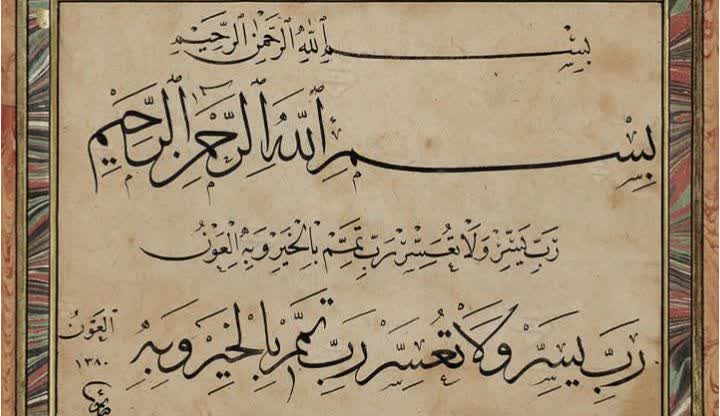 بِسْمِ ٱللّٰهِ ٱلرَّحْمٰنِ ٱلرَّحِيْمِ
بِسْمِ ٱللّٰهِ ٱلرَّحْمٰنِ ٱلرَّحِيْمِ
رَبِّ يَسِّرْ وَلَا تُعَسِّرْ رَبِّ تَمِّمْ بِالْخَيْرِ وَبِهِ الْعَوْنُ
رَبِّ يَسِّرْ وَلَا تُعَسِّرْ رَبِّ تَمِّمْ بِالْخَيْرِ وَبِهِ
الْعَوْنُ
١٣٨٠